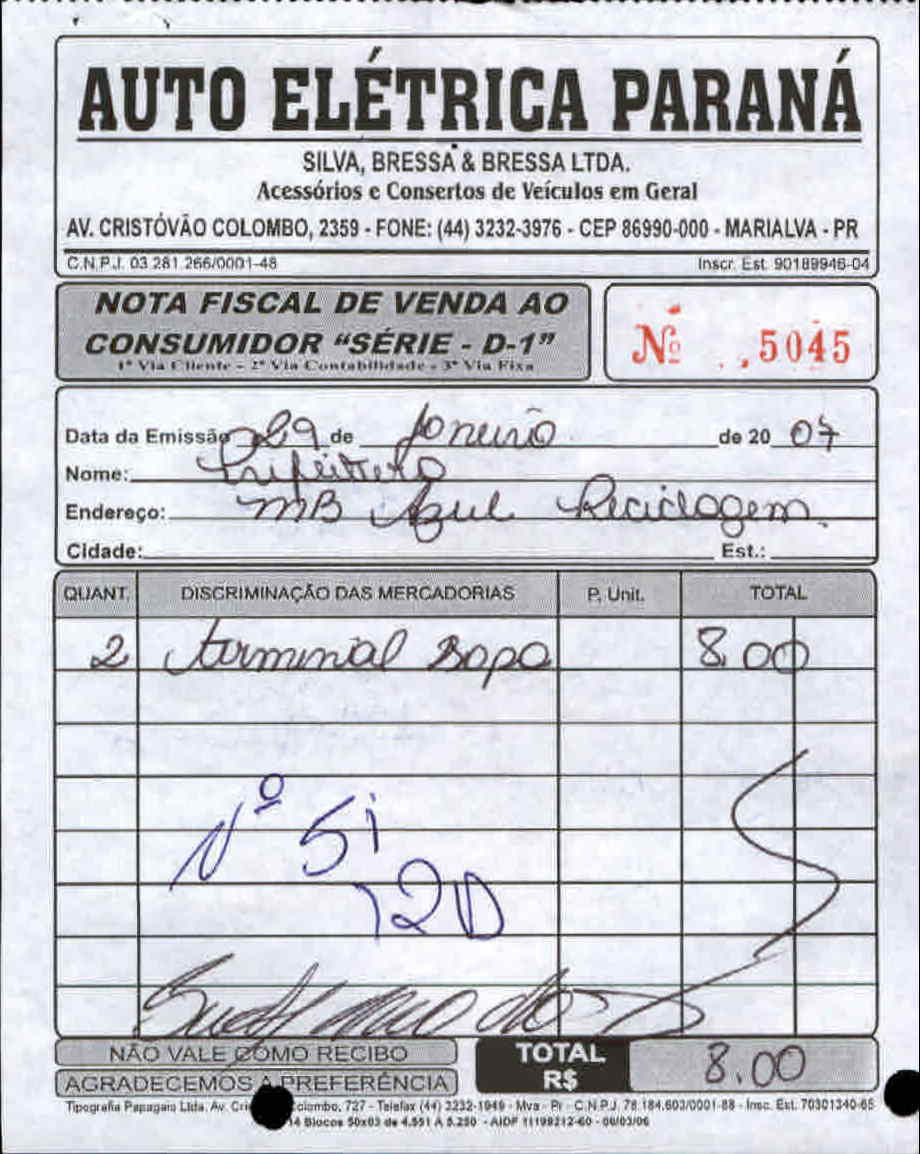 AUTO ELÉTRICA PARANÁ
SILVA, BRESSA & BRESSA LTDA.
Acessórios e Consertos de Veículos em Geral
AV. CRISTÓVÃO COLOMBO, 2359 - FONE: (44) 3232-3976 - CEP 86990-000 - MARIALVA - PR
C.N.P.J. 03.281.266/0001-48 Inscr. Est. 90189946-04
NOTA FISCAL DE VENDA AO
CONSUMIDOR "SÉRIE - D-1"
1ª Via Cliente - 2ª Via Contabilidade - 3ª Via Fixa
Nº 5045
Data da Emissão 29 de Janeiro de 20 07
Nome:
Endereço: MB Azul Reciclagem
Cidade: Est.:
QUANT. DISCRIMINAÇÃO DAS MERCADORIAS P. Unit. TOTAL
2 terminal Sapo 8,00
Nº 51
120
NÃO VALE COMO RECIBO
AGRADECEMOS A PREFERÊNCIA
TOTAL
R$ 8.00
Tipografia Papagaio Ltda. Av. Colombo, 727 - Telefax (44) 3232-1949 - Mva - Pr - C.N.P.J. 78.184.603/0001-88 - Insc. Est. 70301340-65
14 Blocos 50x03 de 4.551 A 5.250 - AIDF 11199212-60 - 06/03/06